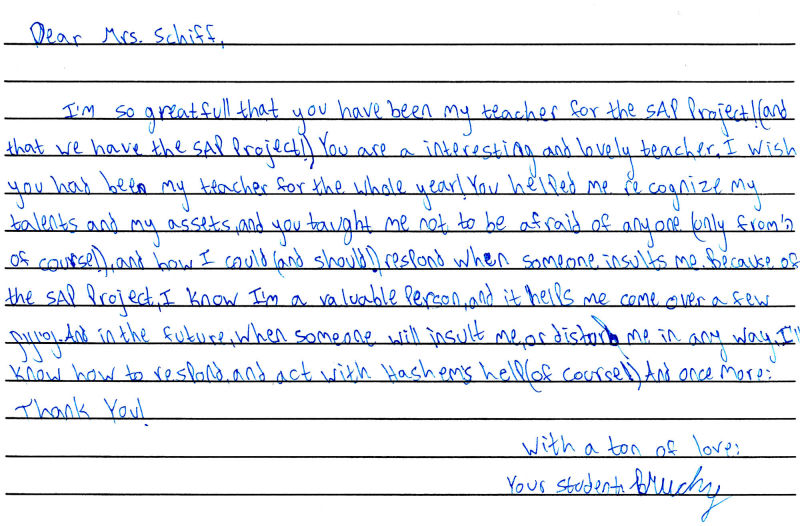 Dear Mrs. Schiff,
I'm so greatfull that you have been my teacher for the SAP Project! (and
that we have the SAP Project!) You are a interesting and lovely teacher. I wish
you had been my teacher for the whole year! You helped me recognize my
talents and my assets, and you taught me not to be afraid of anyone (only from ה'
of course!), and how I could (and should!) respond when someone insults me. Because of
the SAP Project, I know I'm a valuable person, and it helps me come over a few
And in the future, when someone will insult me, or disturb me in any way, I'll
know how to respond, and act with Hashem's help (of course!) And once more:
Thank You!
With a ton of love:
Your student: Bruchy